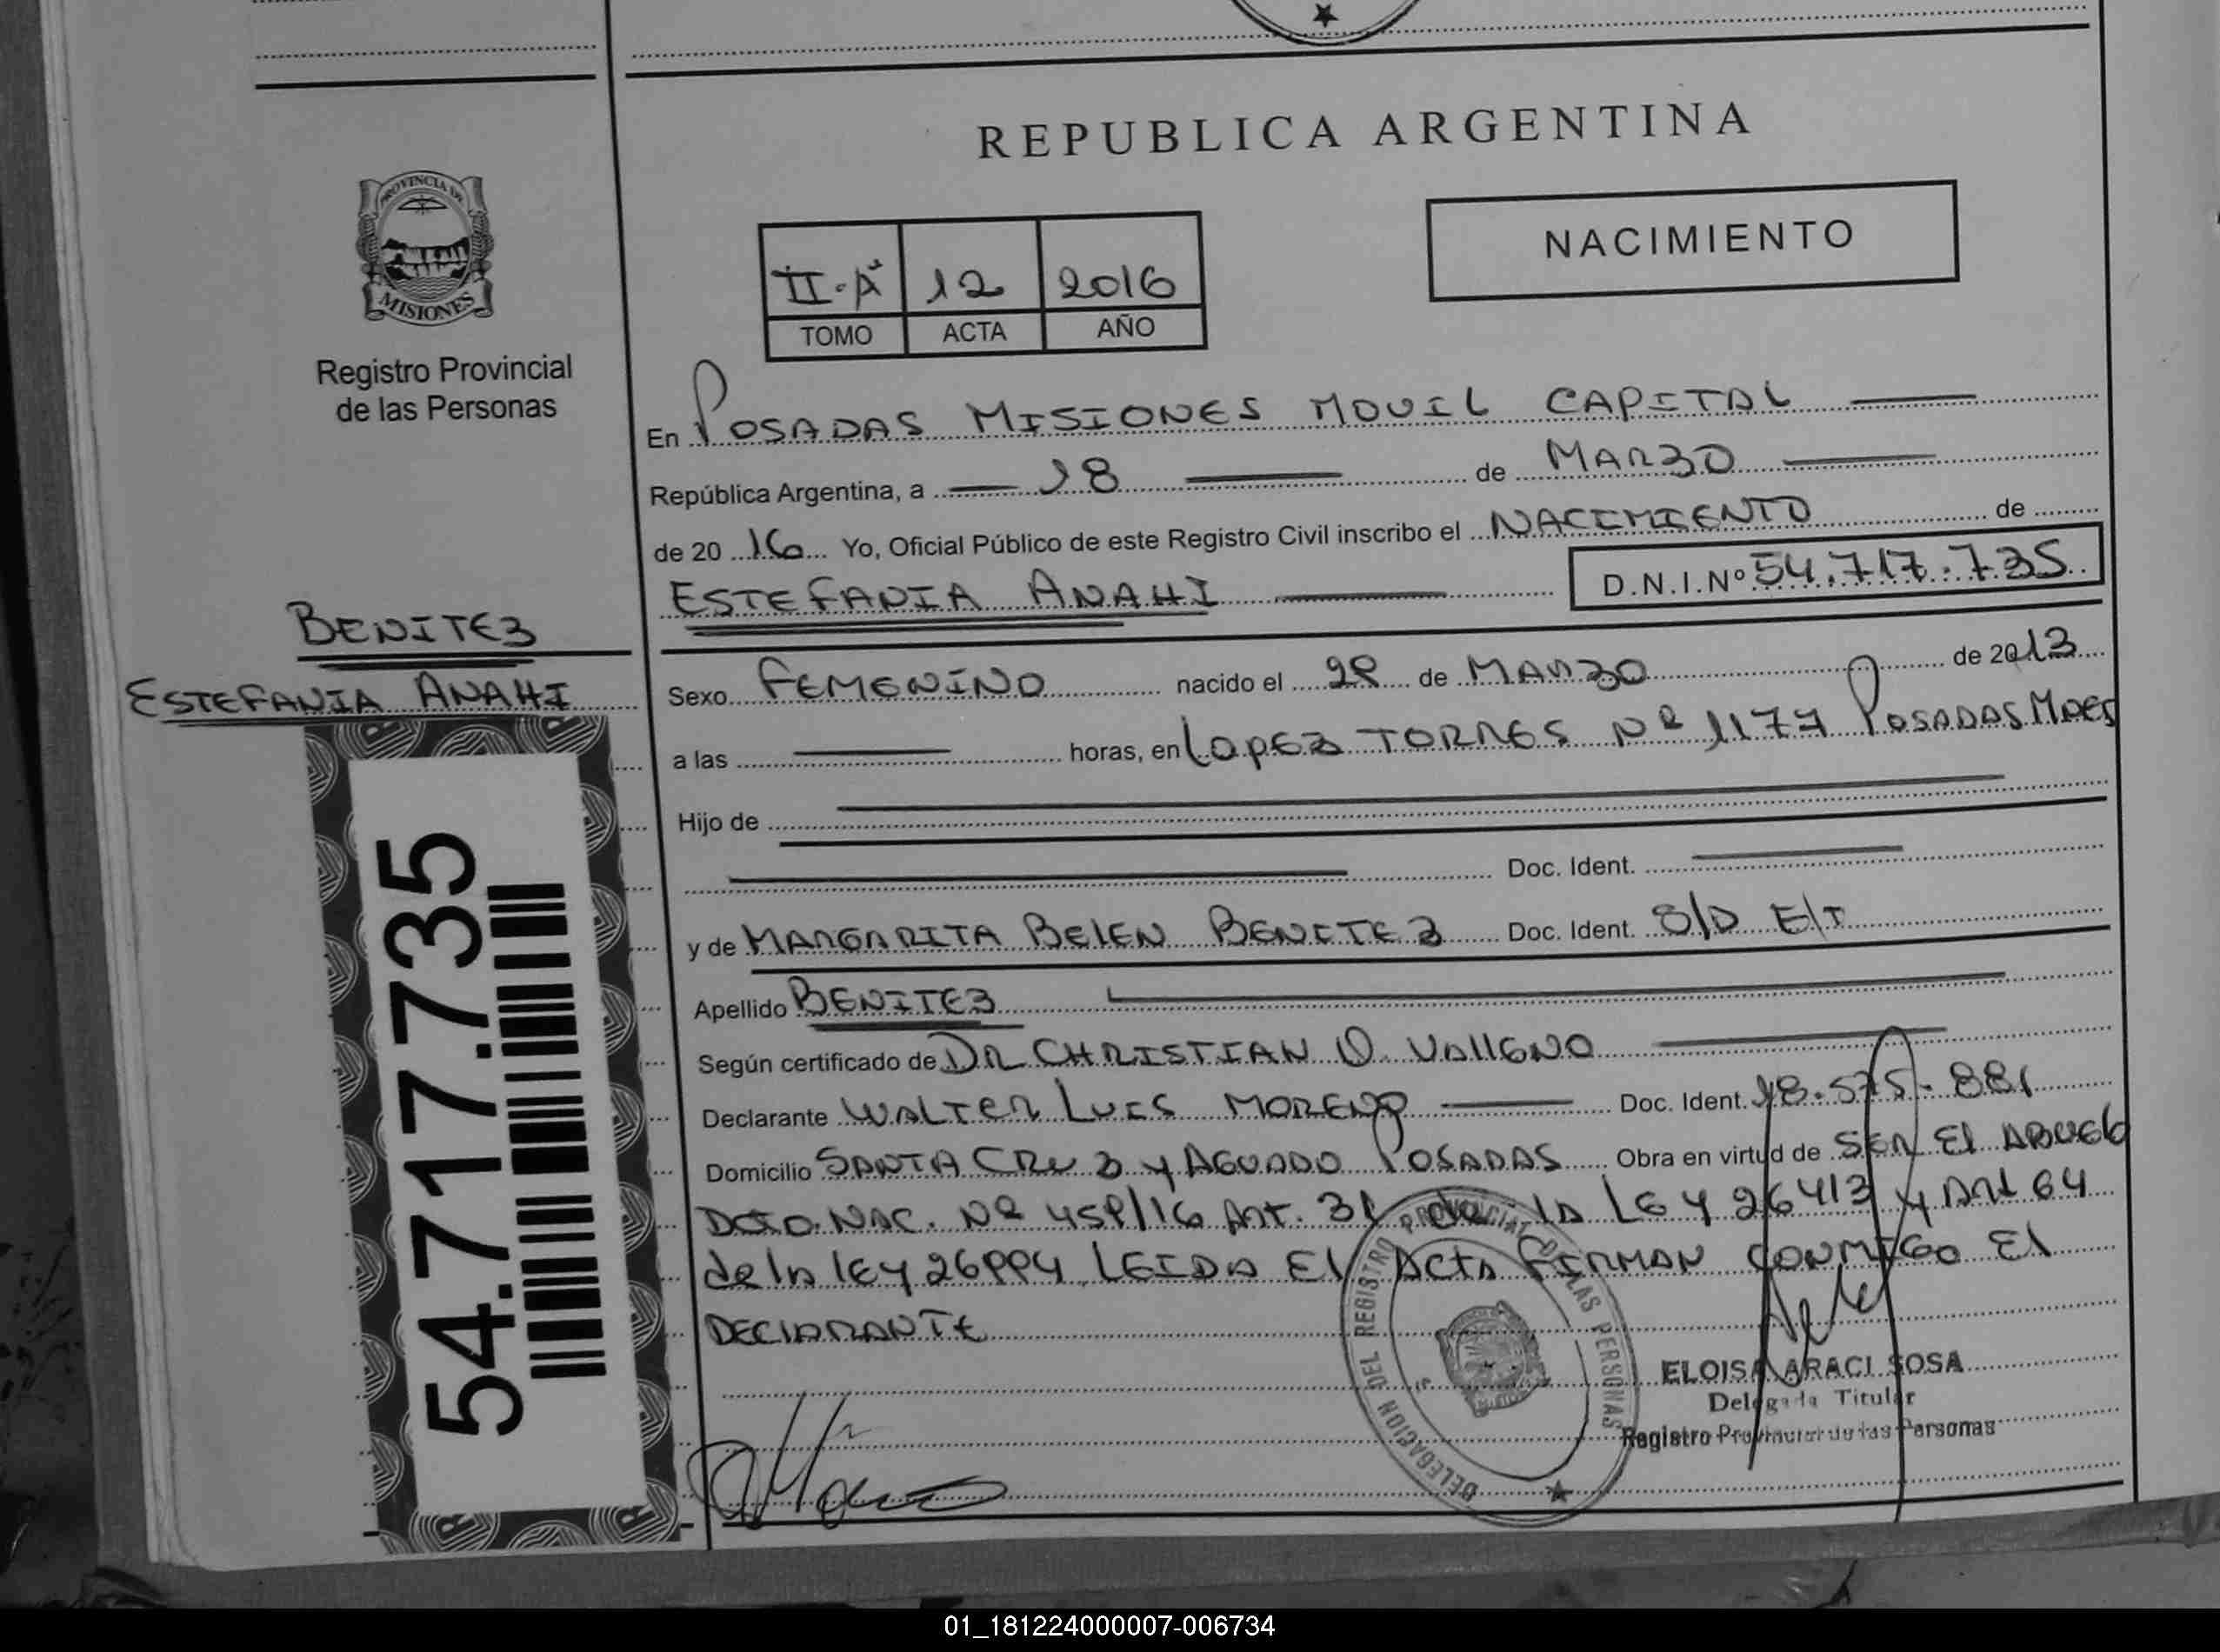 REPUBLICA ARGENTINA
PROVINCIA DE
MISIONES
Registro Provincial
de las Personas
NACIMIENTO
II-A 12 2016
TOMO ACTA AÑO
En POSADAS MISIONES MOVIL CAPITAL
República Argentina, a 18 de MARZO
de 20 16 Yo, Oficial Público de este Registro Civil inscribo el NACIMIENTO de
ESTEFANIA ANAHI D.N.I.Nº 54.717.735
BENITEZ
ESTEFANIA ANAHI
54.717.735
Sexo FEMENINO nacido el 28 de MARZO de 2013
a las horas, en LOPEZ TORRES Nº 1177 POSADAS
Hijo de
Doc. Ident.
y de MARGARITA BELEN BENITEZ Doc. Ident. S/D E/T
Apellido BENITEZ
Según certificado de DR CHRISTIAN O. VALLENO
Declarante WALTER LUIS MORENO Doc. Ident. 18.575.881
Domicilio SANTA CRUZ Y AGUADO POSADAS Obra en virtud de SER EL ABUELO
NAC. Nº 458/16 ART. 31 de la LEY 26413 Y ART 64
de la LEY 26994 LEIDA EL ACTA FIRMAN CONMIGO EL
DECLARANTE
DELEGACION DEL REGISTRO PROVINCIAL DE LAS PERSONAS
ELOISA ARACI SOSA
Delegada Titular
Registro Provincial de las Personas
01_181224000007-006734